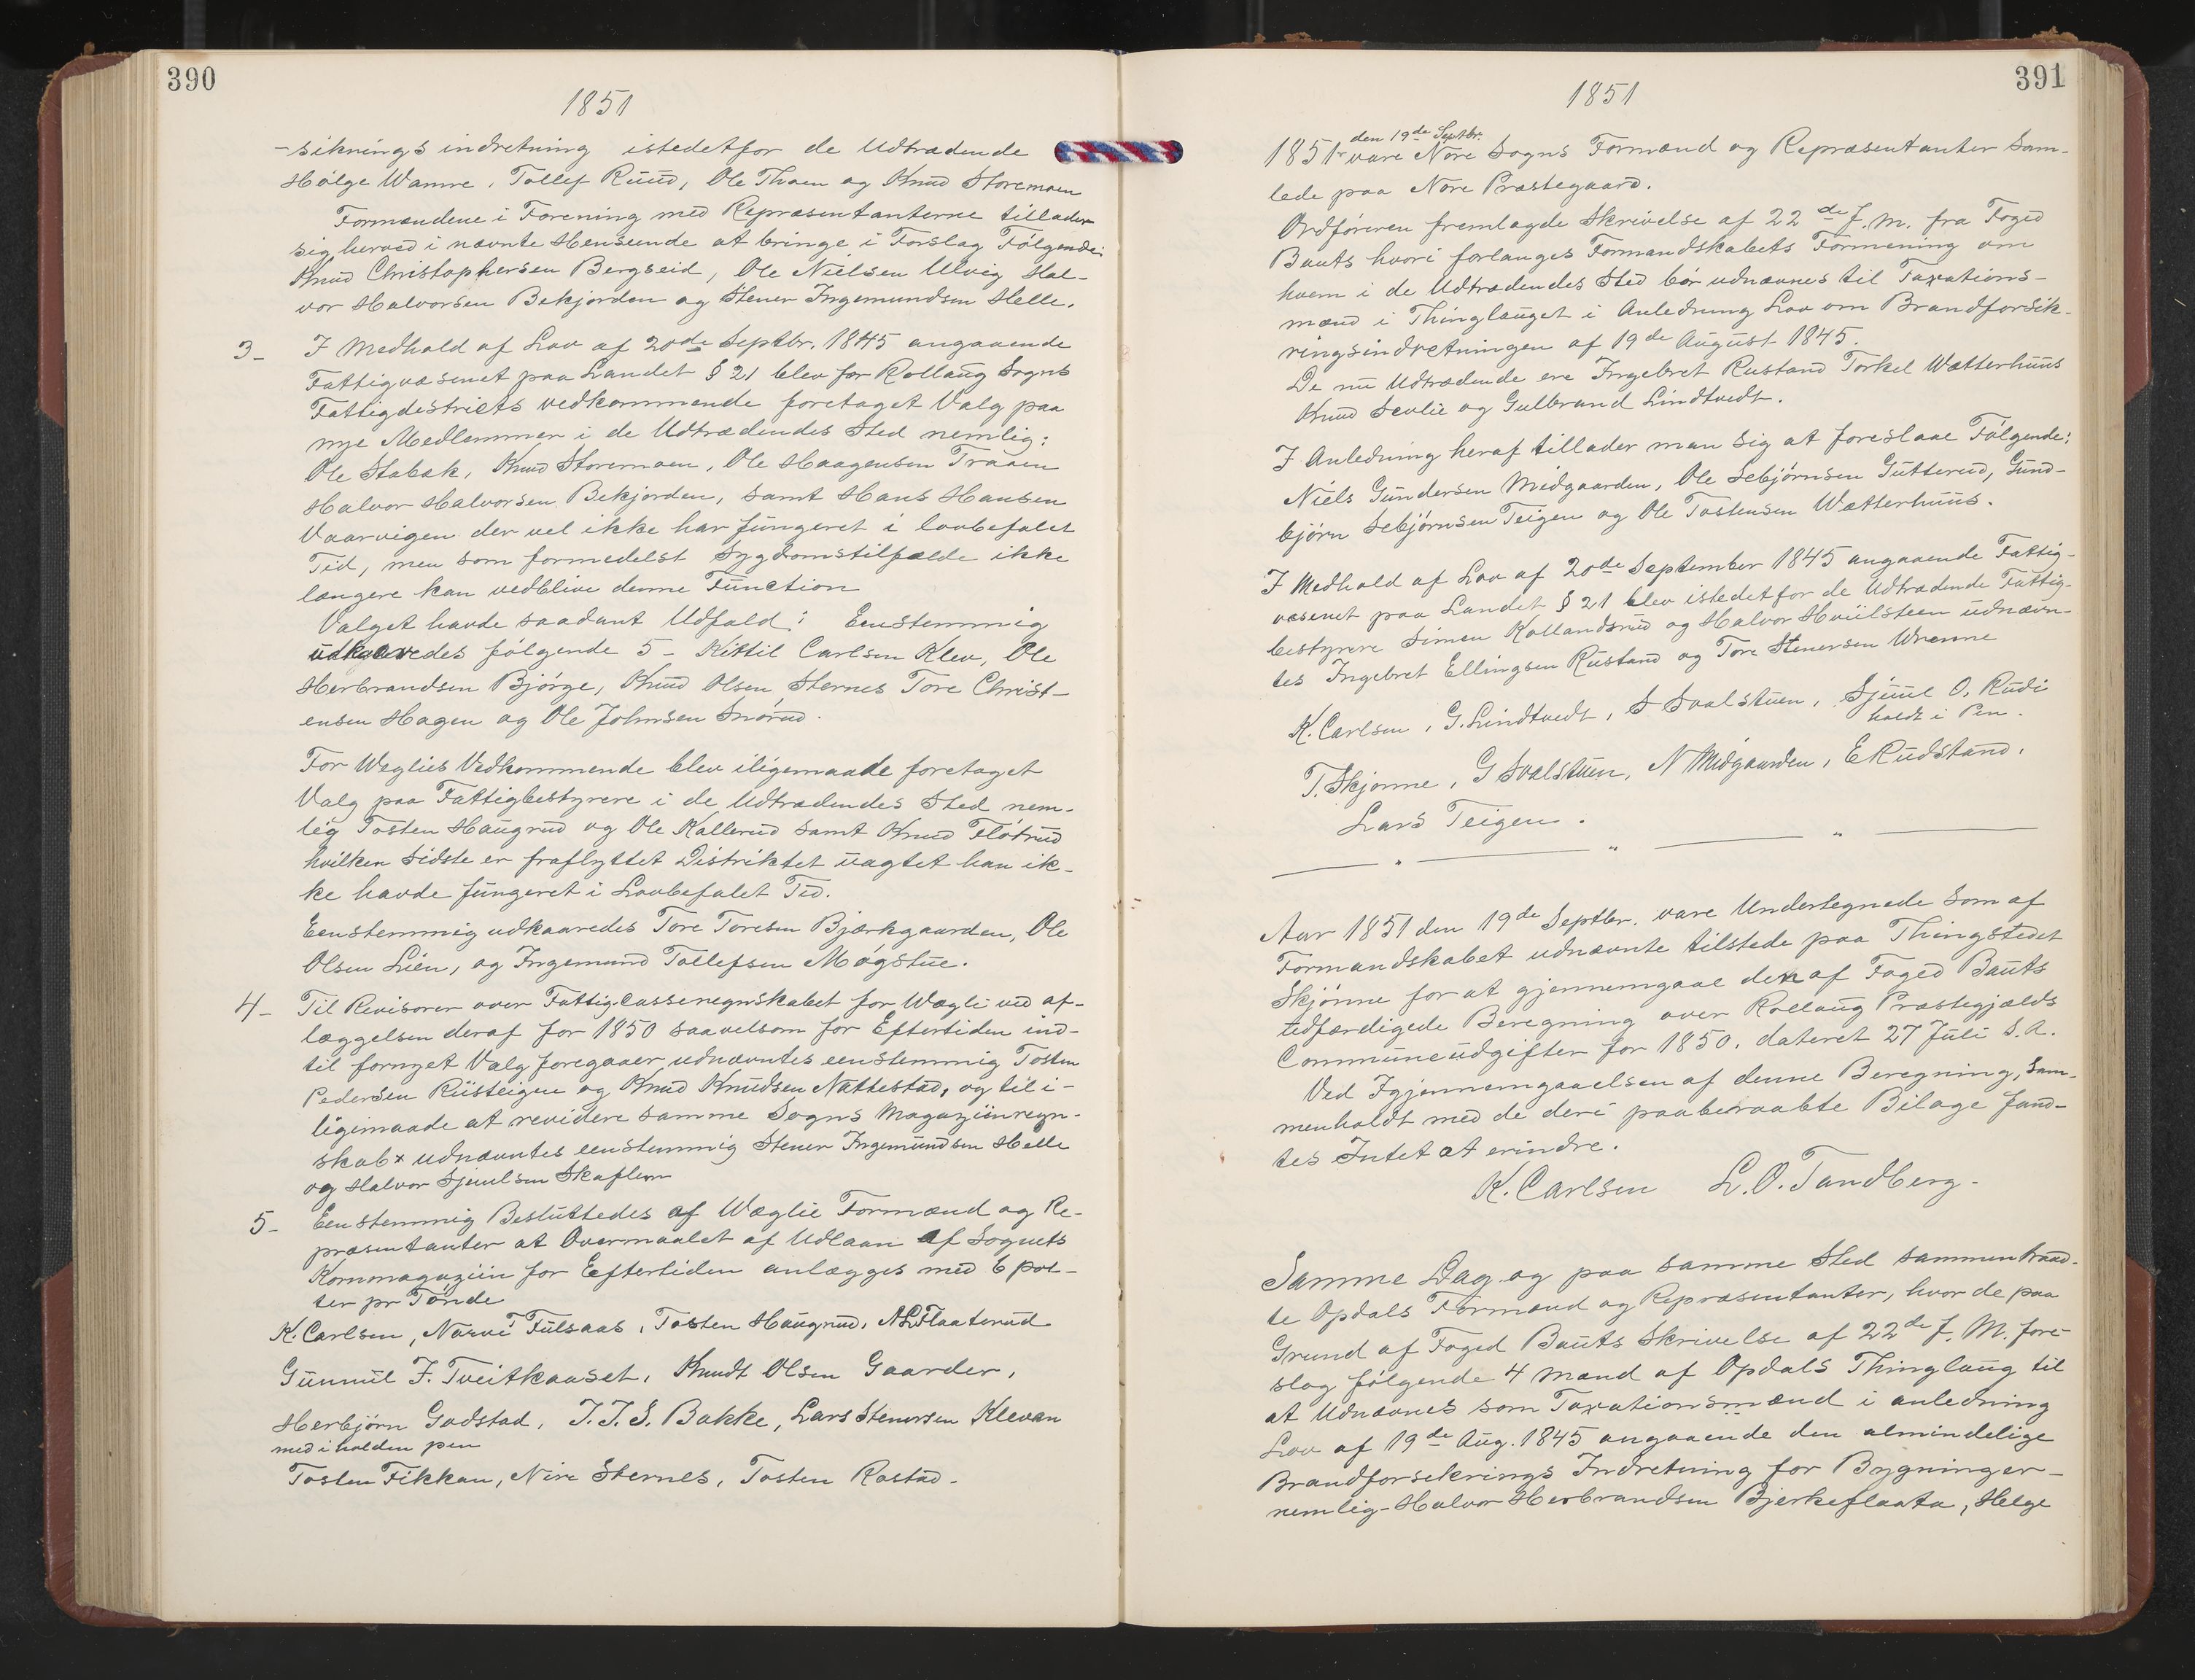 390
1851
-sikrings indretning istedetfor de Udtrædende
Hølge Wamre, Tollef Ruud, Ole Thoen og Knud Storemoen
Formændene i Forening med Repræsentanterne tillader
sig herved i nævnte Henseende at bringe i Forslag Følgende:
Knud Christophersen Bergseid, Ole Nielsen Ulvig Hal-
vor Halvorsen Bekjorden og Stener Ingemundsen Helle.
3- I Medhold af Lov af 20de Septbr. 1845 angaaende
Fattigvæsenet paa Landet § 21 blev for Rollaug Sogns
Fattigdestricts vedkommende foretaget Valg paa
nye Medlemmer i de Udtrædendes Sted nemlig:
Ole Stabæk, Knud Storemoen, Ole Haagensen Traaen
Halvor Halvorsen Bekjorden, samt Hans Hansen
Vaarvigen der vel ikke har fungeret i lovbefalet
Tid, men som formedelst Sygdomstilfælde ikke
længere kan vedblive denne Function
Valget havde saadant Udfald: Eenstemmig
udkaaredes følgende 5- Kittil Carlsen Klev, Ole
Herbrandsen Bjørge, Knud Olsen Sternes Tore Christ-
ensen Hagen og Ole Johnsen Snørud.
For Weglies Vedkommende blev iligemaade foretaget
Valg paa Fattigbestyrere i de Udtrædendes Sted nem-
lig Tosten Haugrud og Ole Kallerud samt Knud Fløtrud
hvilken sidste er fraflyttet Distriktet uagtet han ik-
ke havde fungeret i Lovbefalet Tid.
Eenstemmig udkaaredes Tore Toresen Bjærkgaarden, Ole
Olsen Lien, og Ingemund Tollefsen Møgstue.
4- Til Revisorer over Fattigcasseregnskabet for Wægli ved af-
læggelsen deraf for 1850 saavelsom for Eftertiden ind-
til fornyet Valg foregaaer udnævntes eenstemmig Tosten
Pedersen Rusteigen og Knud Knudsen Nattestad, og til i-
ligemaade at revidere samme Sogns Magaziinregn-
skab x udnævntes eenstemmig Stener Ingemundsen Helle
og Halvor Sjeulsen Skaflem
5- Eenstemmig Besluttedes af Wæglie Formænd og Re-
præsentanter at Overmaalet af Udlaan af Sognets
Kornmagaziin for Eeftertiden anlægges med 6 pot-
ter pr Tønde
K. Carlsen, Narve T Fulsaas, Tosten Haugrud, N L Flaaterud
Gunnul F. Tveitkaaset, Knudt Olsen Gaarder,
Herbjørn Godstad, T. T. S. Bakke, Lars Stenersen Klevan
med i holden pen
Tosten Fikkan, Nire Sternes, Tosten Rostad-
391
1851
den 19de Septbr.
1851 vare Nore Sogns Formænd og Repræsentanter Sam-
lede paa Nore Præstegaard.
Ordføreren fremlagde Skrivelse af 22de f. m. fra Foged
Bauts hvori forlanges Formandskabets Formening om
hvem i de Udtrædendes Sted bør udnævnes til Taxations-
mænd i Thinglauget i Anledning Lov om Brandforsik-
ringsindretningen af 19de August 1845.
De nu Udtrædende ere Ingebret Rustand Torkel Wætterhuus
Knud Sevlie og Gulbrand Lindtvedt.
I Anledning heraf tillader man sig at foreslaae Følgende:
Niels Gundersen Midgaarden, Ole Sebjørnsen Gutterud, Gund-
bjørn Sebjørnsen Teigen og Ole Tostensen Wætterhuus.
I Medhold af Lov af 20de September 1845 angaaende Fattig-
væsenet paa Landet § 21 blev istedetfor de Udtrædende Fattig-
bestyrere Simen Kollandsrud og Halvor Hviilsteen udnævn-
tes Ingebret Ellingsen Rustand og Tore Stenersen Wrenne
K. Carlsen, G. Lindtvedt, S Svalstuen, Sjuul O. Rudi
holdt i Pen.
T. Skjønne, G Svalstuen, N Midgaarden, E Rudstand,
Lars Teigen.
Aar 1851 den 19de Septbr. vare Undertegnede som af
Formandskabet udnævnte tilstede paa Thingstedet
Skjønne for at gjennemgaae den af Foged Bauts
udfærdigede Beregning over Rollaug Præstegjælds
Communeudgifter for 1850. dateret 27 Juli S. A.
Ved Igjennemgaaelsen af denne Beregning, sam-
menholdt med de deri paaberaabte Bilage fand-
tes Intet at erindre.
K. Carlsen L. O. Tandberg-
Samme Dag og paa samme Sted sammentraad-
te Opdals Formænd og Repræsentanter, hvor de paa
Grund af Foged Bauts Skrivelse af 22de f. M. fore-
slog følgende 4 Mænd af Opdals Thinglaug til
at Udnævnes som Taxationsmænd i anledning
Lov af 19de Aug. 1845 angaaende den almindelige
Brandforsekrings Indretning for Bygninger-
nemlig- Halvor Herbrandsen Bjerkeflaata, Helge